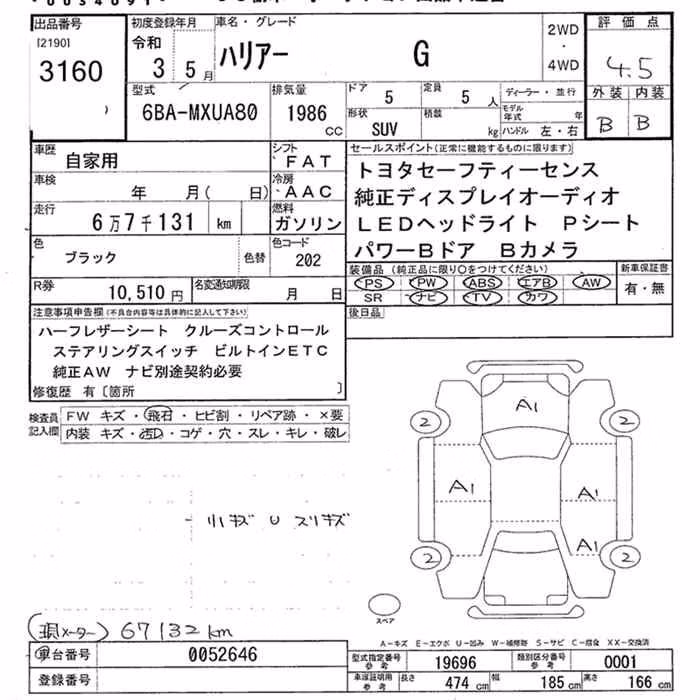 出品番号 初度登録年月 車名・グレード 2WD 評価点
[2190] 令和 ハリアー G ・ 4.5
3160 3 5月 4WD
型式 排気量 ドア 5 定員 5人 ディーラー・並行 外装 内装
6BA-MXUA80 1986 cc 形状 SUV 積載 kg モデル年式 年 B B
ハンドル 左・右
車歴 自家用 シフト FAT セールスポイント(正常に機能するものに限ります)
車検 年 月( 日) 冷房 AAC トヨタセーフティーセンス
走行 6万7千131 km 燃料 ガソリン 純正ディスプレイオーディオ
色 ブラック 色替 色コード 202 LEDヘッドライト Pシート
パワーBドア Bカメラ
R券 10,510円 名変通知期限 月 日 装備品(純正品に限り○をつけてください) 新車保証書
PS PW ABS エアB AW 有・無
SR ナビ TV カワ
注意事項申告欄(不具合内容等は具体的に記入して下さい) 後日品
ハーフレザーシート クルーズコントロール
ステアリングスイッチ ビルトインETC
純正AW ナビ別途契約必要
修復歴 有〔箇所 〕
検査員記入欄 FW キズ・飛石・ヒビ割・リペア跡・×要
内装 キズ・汚D・コゲ・穴・スレ・キレ・破レ
A1
2 2
A1 A1
A1
2 2
小キズ U スリキズ
スペア
(現メーター) 67132km
A-キズ E-エクボ U-凹み W-補修跡 S-サビ C-腐食 XX-交換済
車台番号 0052646 型式指定番号 参考 19696 類別区分番号 参考 0001
登録番号 車庫証明用 参考 長さ 474cm 幅 185cm 高さ 166cm